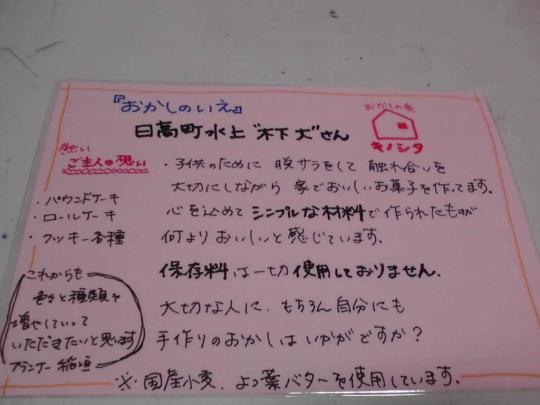 『おかしのいえ』
おかしの家
キノシタ
日高町水上 木下 丈さん
熱い
ご主人の想い
・子供のために 脱サラをして 触れ合いを
大切にしながら 家でおいしいお菓子を作ってます。
心を込めて シンプルな材料で作られたものが
何よりおいしいと感じています。
・パウンドケーキ
・ロールケーキ
・クッキー各種
保存料は一切使用しておりません。
大切な人に、もちろん自分にも
手作りのおかしは いかがですか?
これからも
色々と種類を
増やしていって
いただきたいと思います
プランナー 稲垣
※国産小麦、よつ葉バターを使用しています。